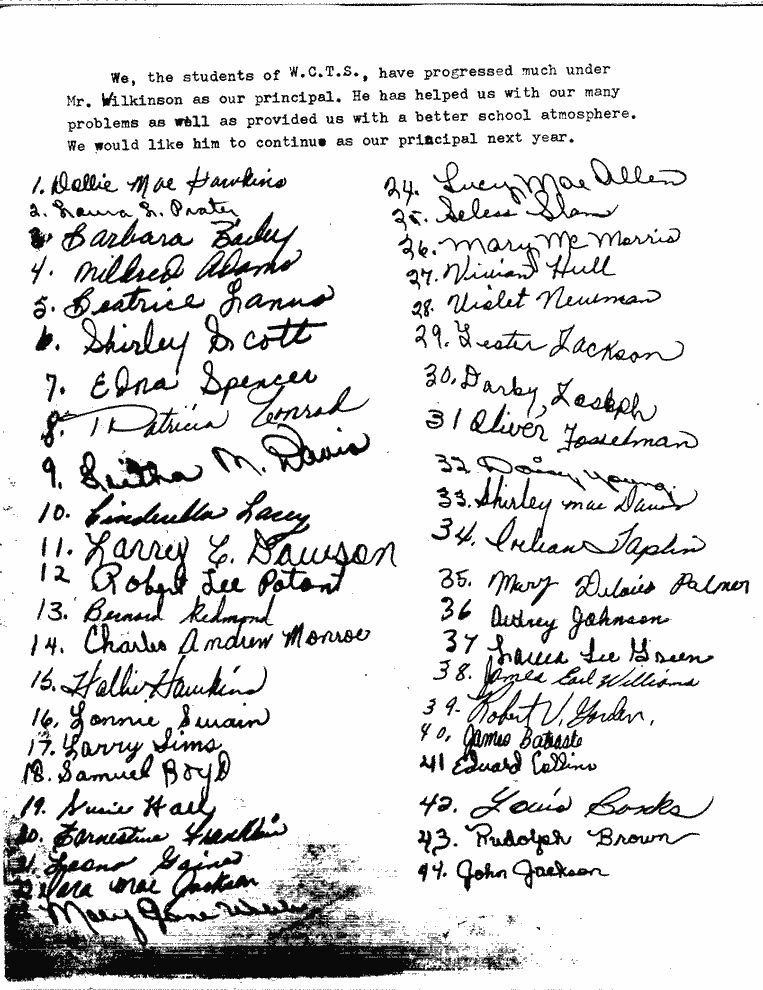 We, the students of W.C.T.S., have progressed much under
Mr. Wilkinson as our principal. He has helped us with our many
problems as well as provided us with a better school atmosphere.
We would like him to continue as our principal next year.
1. Dollie Mae Hawkins
2. Laura L. Prater
3. Barbara Bailey
4. Mildred Adams
5. Beatrice Lanns
6. Shirley Scott
7. Edna Spencer
8. Patricia Conrad
9. M. Davis
10. Cinderella Lacey
11. Larry E. Dawson
12 Robert Lee
13. Bernard Redmond
14. Charles Andrew Monroe
15. Hallie Hawkins
16. Lonnie Swain
17. Larry Sims
18. Samuel Boyd
19. Susie Hall
20. Earnestine Franklin
Gaines
Mae Jackson
Mary Jane
24. Lucy Mae Allen
25.
26. Mary McMorris
27. Vivian Hull
28. Violet Newman
29. Lester Jackson
30. Darby,
31 Oliver,
32 Daisy Young
33. Shirley mae Davis
34. Taplin
35. Mary Delois Palmer
36 Audrey Johnson
37 Laura Lee Green
38. James Earl Williams
39. Robert V. Gorden,
40, James Batiste
41 Edward Collins
42. Louis Banks
43. Rudolph Brown
44. John Jackson